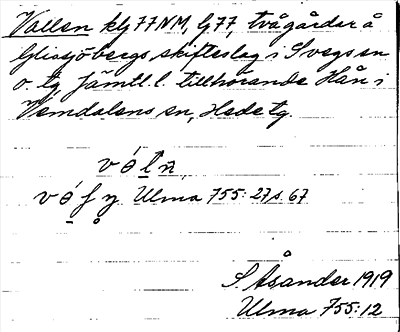 Vallen klj 77 NM, G 77, två gårdar å
Glissjöbergs skifteslag i Svegs sn
o. tg Jämtl. l. tillhörande Hån i
Vemdalens sn, Hede tg.
Ulma 755:27 s. 67
S Åsander 1919
Ulma 755:12